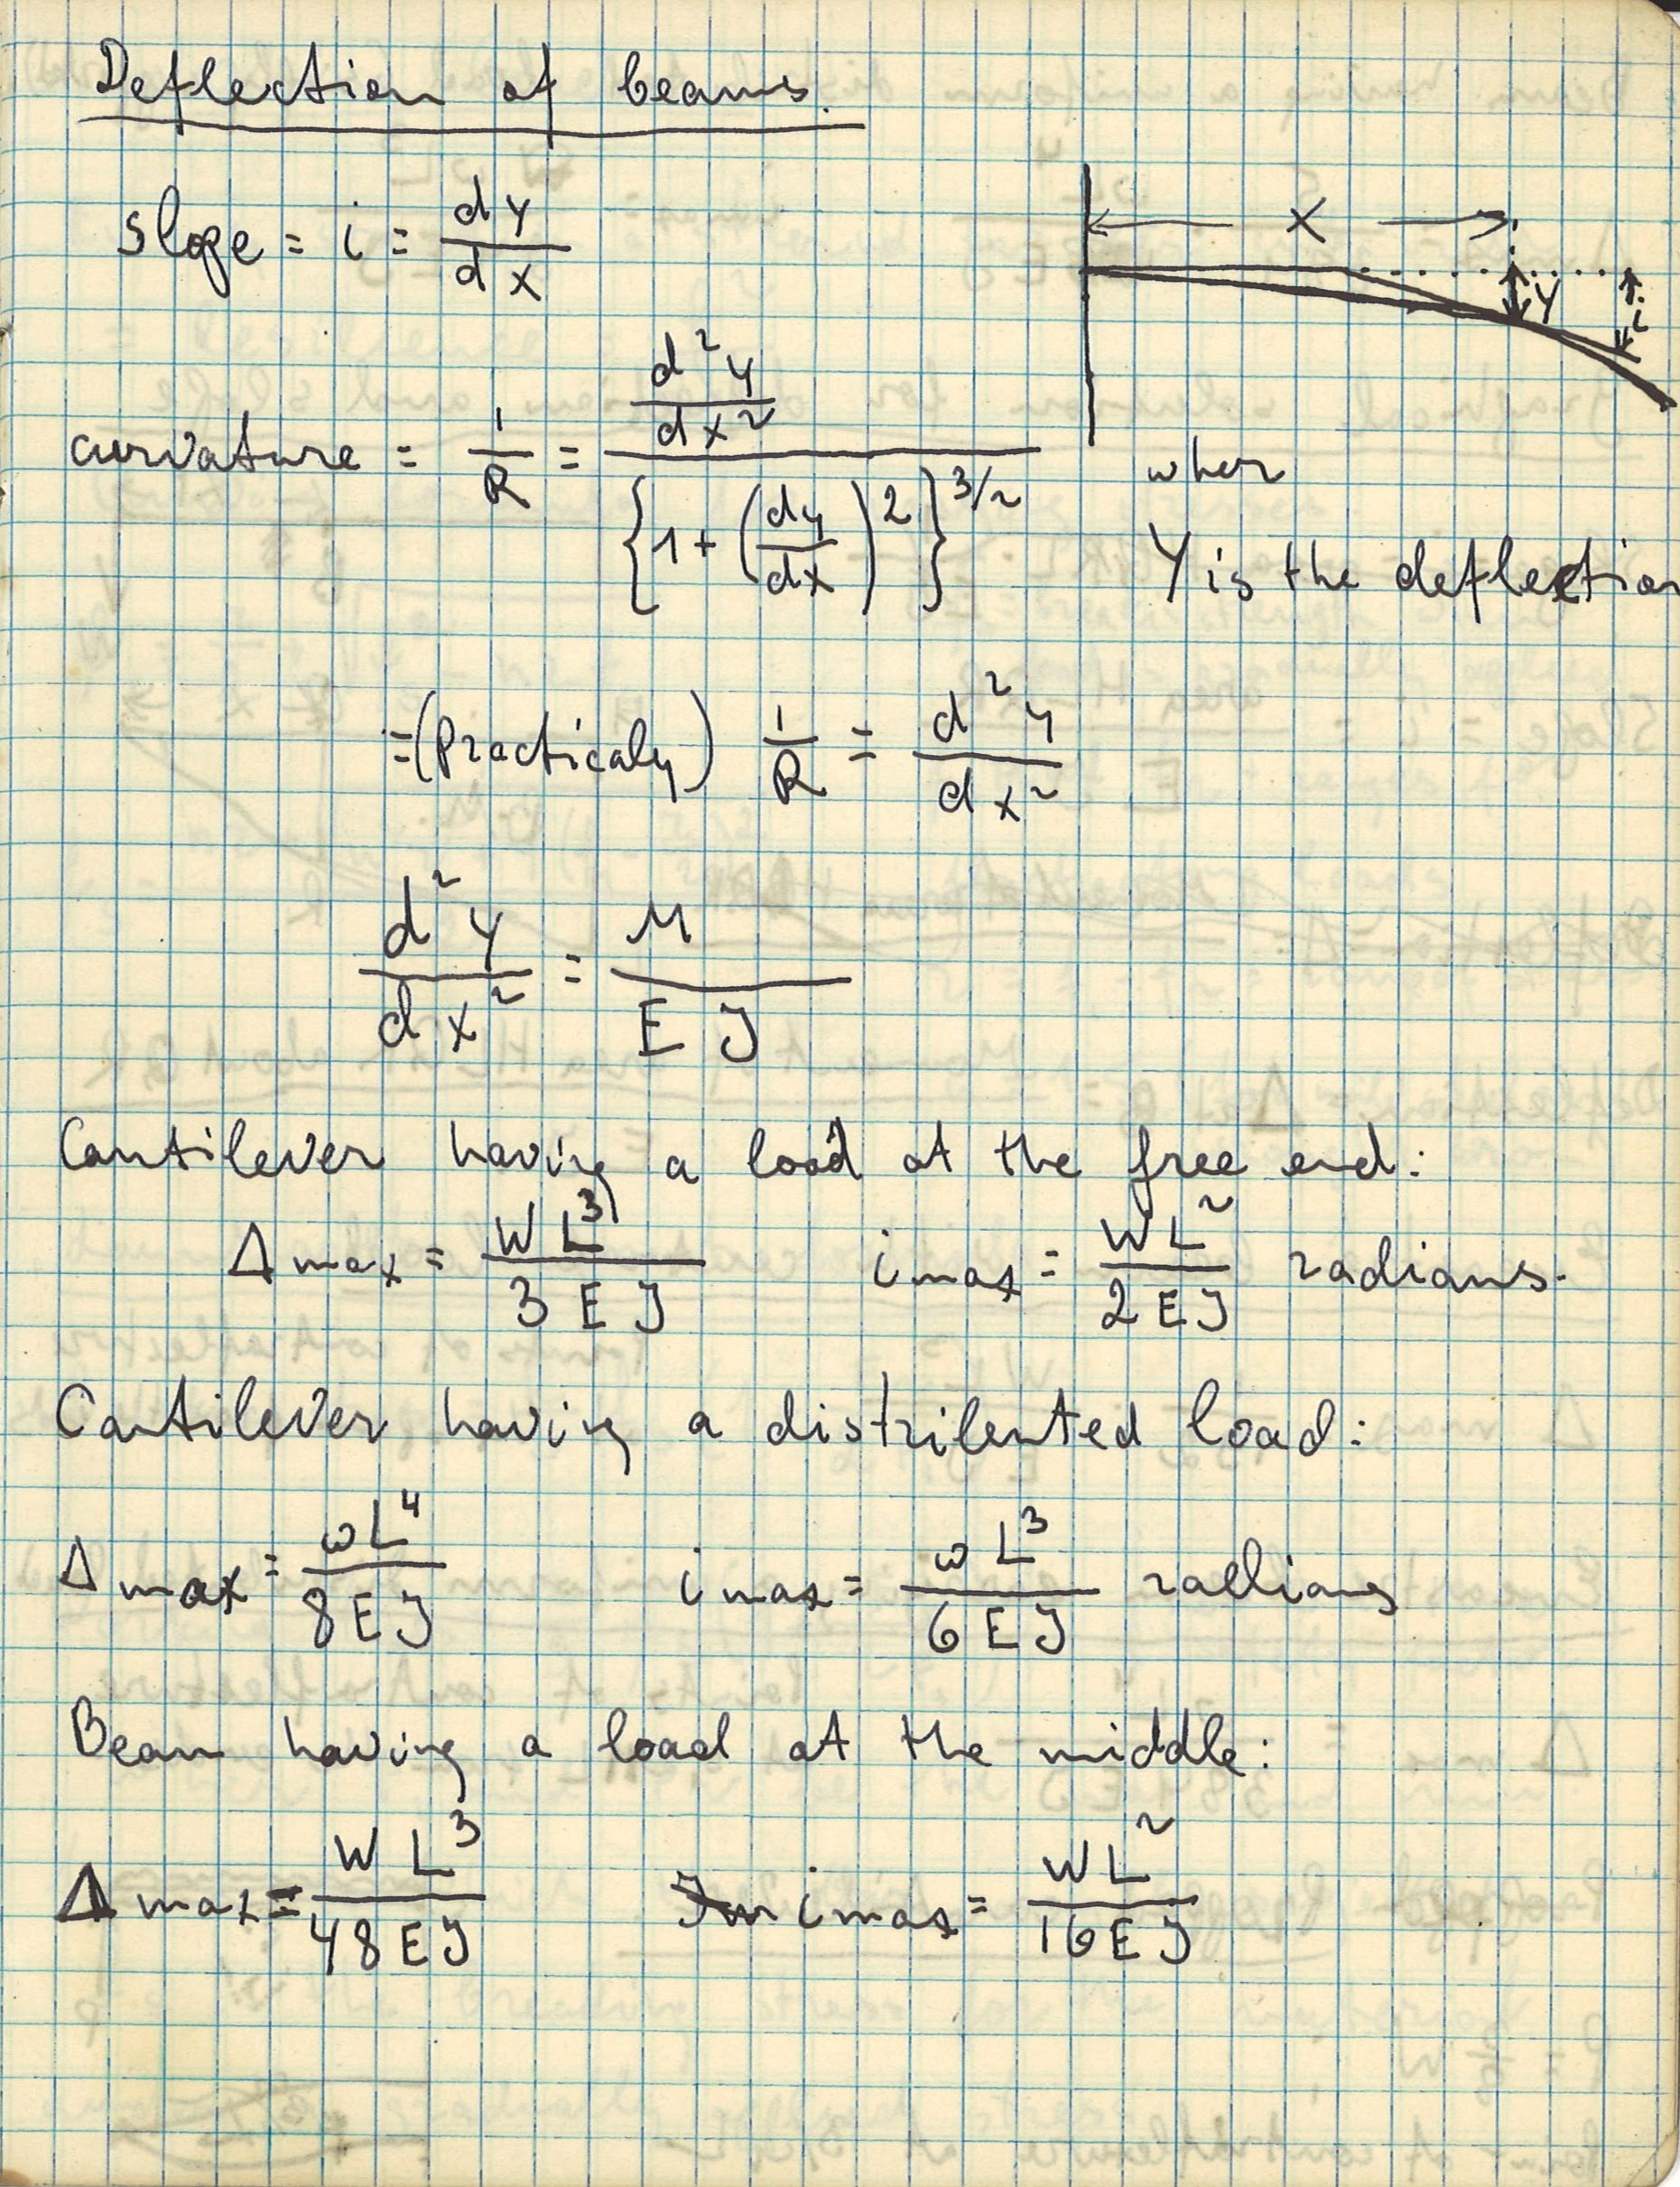 Deflection of beams.
slope = i = dy/dx
X
Y
i
curvature = 1/R = (d²y/dx²) / {1+(dy/dx)²}^3/2
wher
Y is the deflection
=(Practicaly) 1/R = d²y/dx²
d²y/dx² = M/EJ
Cantilever having a load at the free end:
Δmax = WL³/3EJ imax = WL²/2EJ radians.
Cantilever having a distributed load:
Δmax = wL⁴/8EJ imax = wL³/6EJ radians
Beam having a load at the middle:
Δmax = WL³/48EJ imax = WL²/16EJ